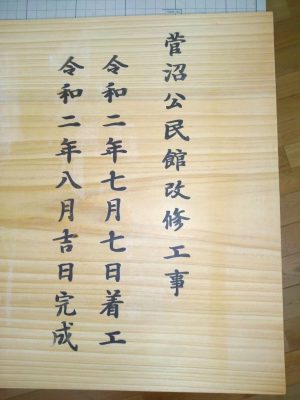 菅沼公民館改修工事
令和二年七月七日着工
令和二年八月吉日完成